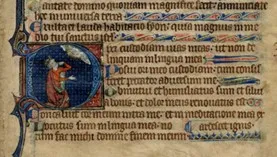 cantate domino quoniam magnifice fecit: annunciate
hec in universa terra
Exulta et lauda habitatio syon: quia magnus in me
dio tui sanctus israel
Dixi custodiam vias meas: ut non de
linquam in lingua mea
Posui ori meo custodiam: cum consisteret
peccator adversum me
Obmutui et humiliatus sum et silui
a bonis: et dolor meus renovatus est
Concaluit cor meum intra me: et in meditatione mea ex
ardescet ignis
Locutus sum in lingua mea: no
tum fac michi domine finem meum